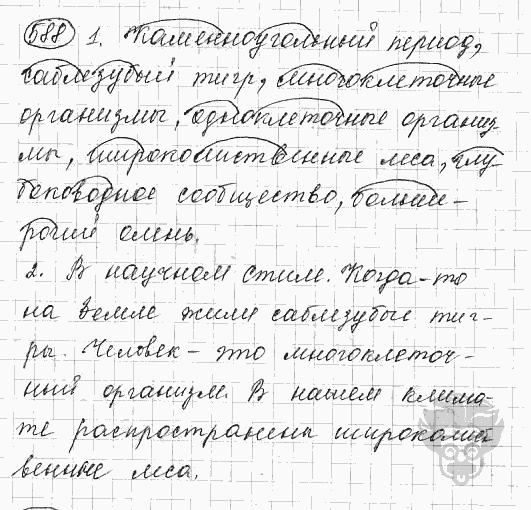 588 1. Каменноугольный период,
саблезубый тигр, многоклеточные
организмы, одноклеточные организ-
мы, широколиственные леса, глу-
боководное сообщество, больше-
рогий олень.
2. В научном стиле. Когда-то
на Земле жили саблезубые тиг-
ры. Человек - это многоклеточ-
ный организм. В нашем клима-
те распространены широколист
венные леса.